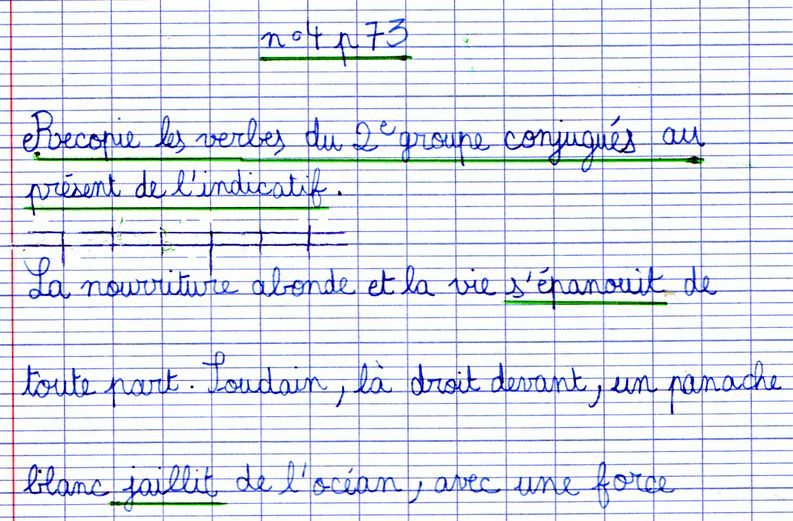 n°4 p 73
Recopie les verbes du 2e groupe conjugués au
présent de l'indicatif.
La nourriture abonde et la vie s'épanouit de
toute part. Soudain, là droit devant, un panache
blanc jaillit de l'océan, avec une force